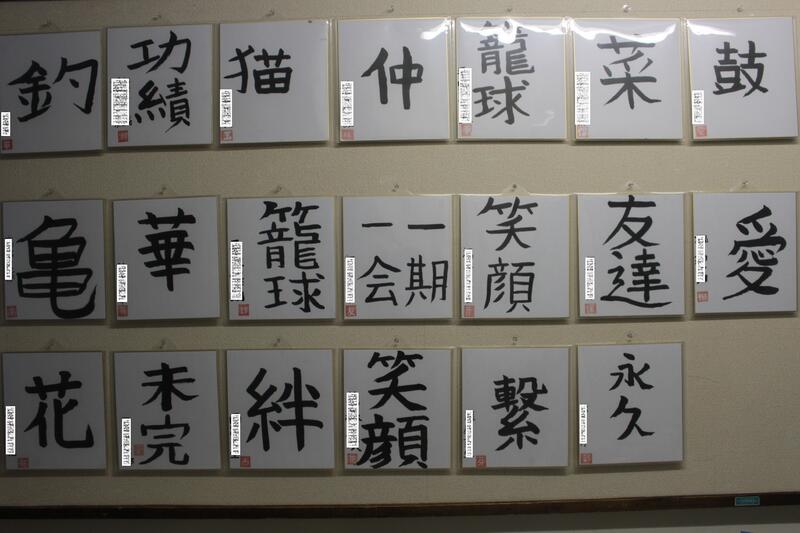 釣
功績
猫
仲
籠球
菜
鼓
亀
華
籠球
一期
一会
笑顔
友達
愛
花
未完
絆
笑顔
繋
永久